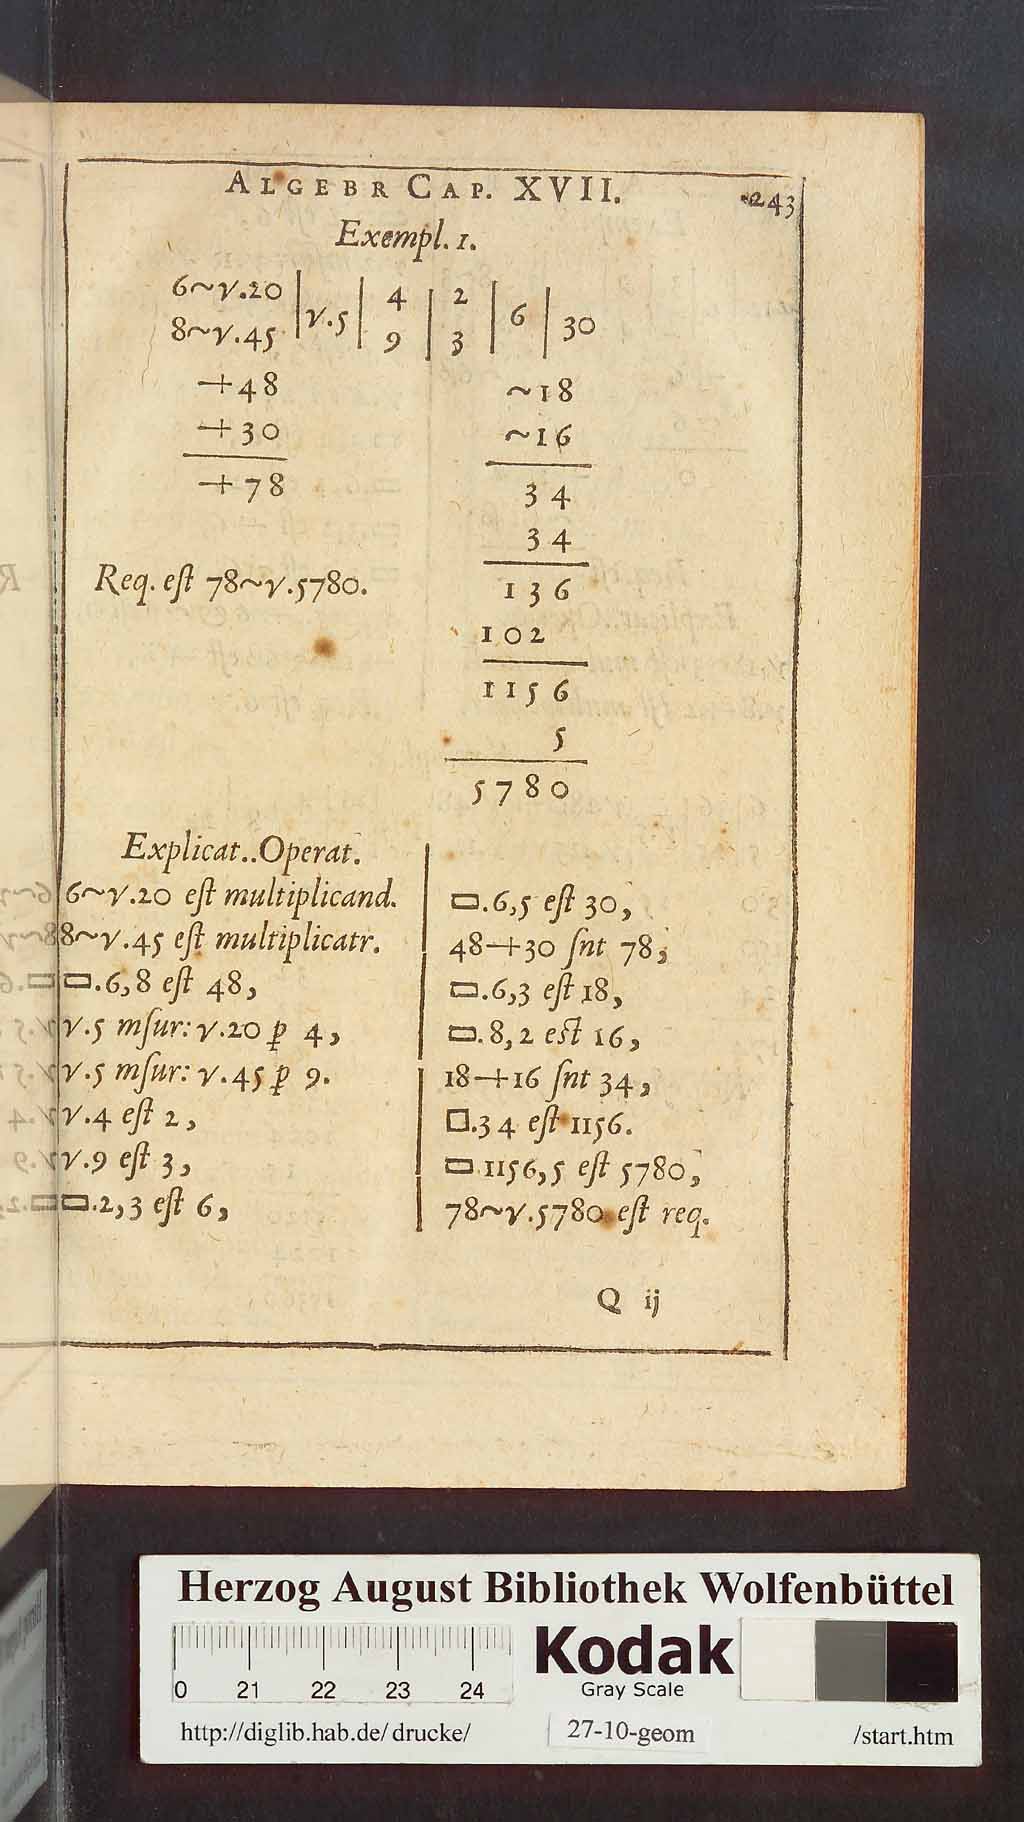 ALGEBR CAP. XVII. 243
Exempl. 1.
6~√.20 | √.5 | 4 | 2 | 6 | 30
8~√.45 | 9 | 3
+48
+30
+78
Req. est 78~√.5780.
~18
~16
34
34
136
102
1156
5
5780
Explicat..Operat.
6~√.20 est multiplicand.
8~√.45 est multiplicatr.
▭.6,8 est 48,
√.5 mſur: √.20 ꝑ 4,
√.5 mſur: √.45 ꝑ 9.
√.4 est 2,
√.9 est 3,
▭.2,3 est 6,
▭.6,5 est 30,
48+30 ſnt 78,
▭.6,3 est 18,
▭.8,2 est 16,
18+16 ſnt 34,
□.34 est 1156.
▭.1156,5 est 5780,
78~√.5780 est req.
Q ij
Herzog August Bibliothek Wolfenbüttel
0 21 22 23 24
Kodak
Gray Scale
http://diglib.hab.de/drucke/ 27-10-geom /start.htm